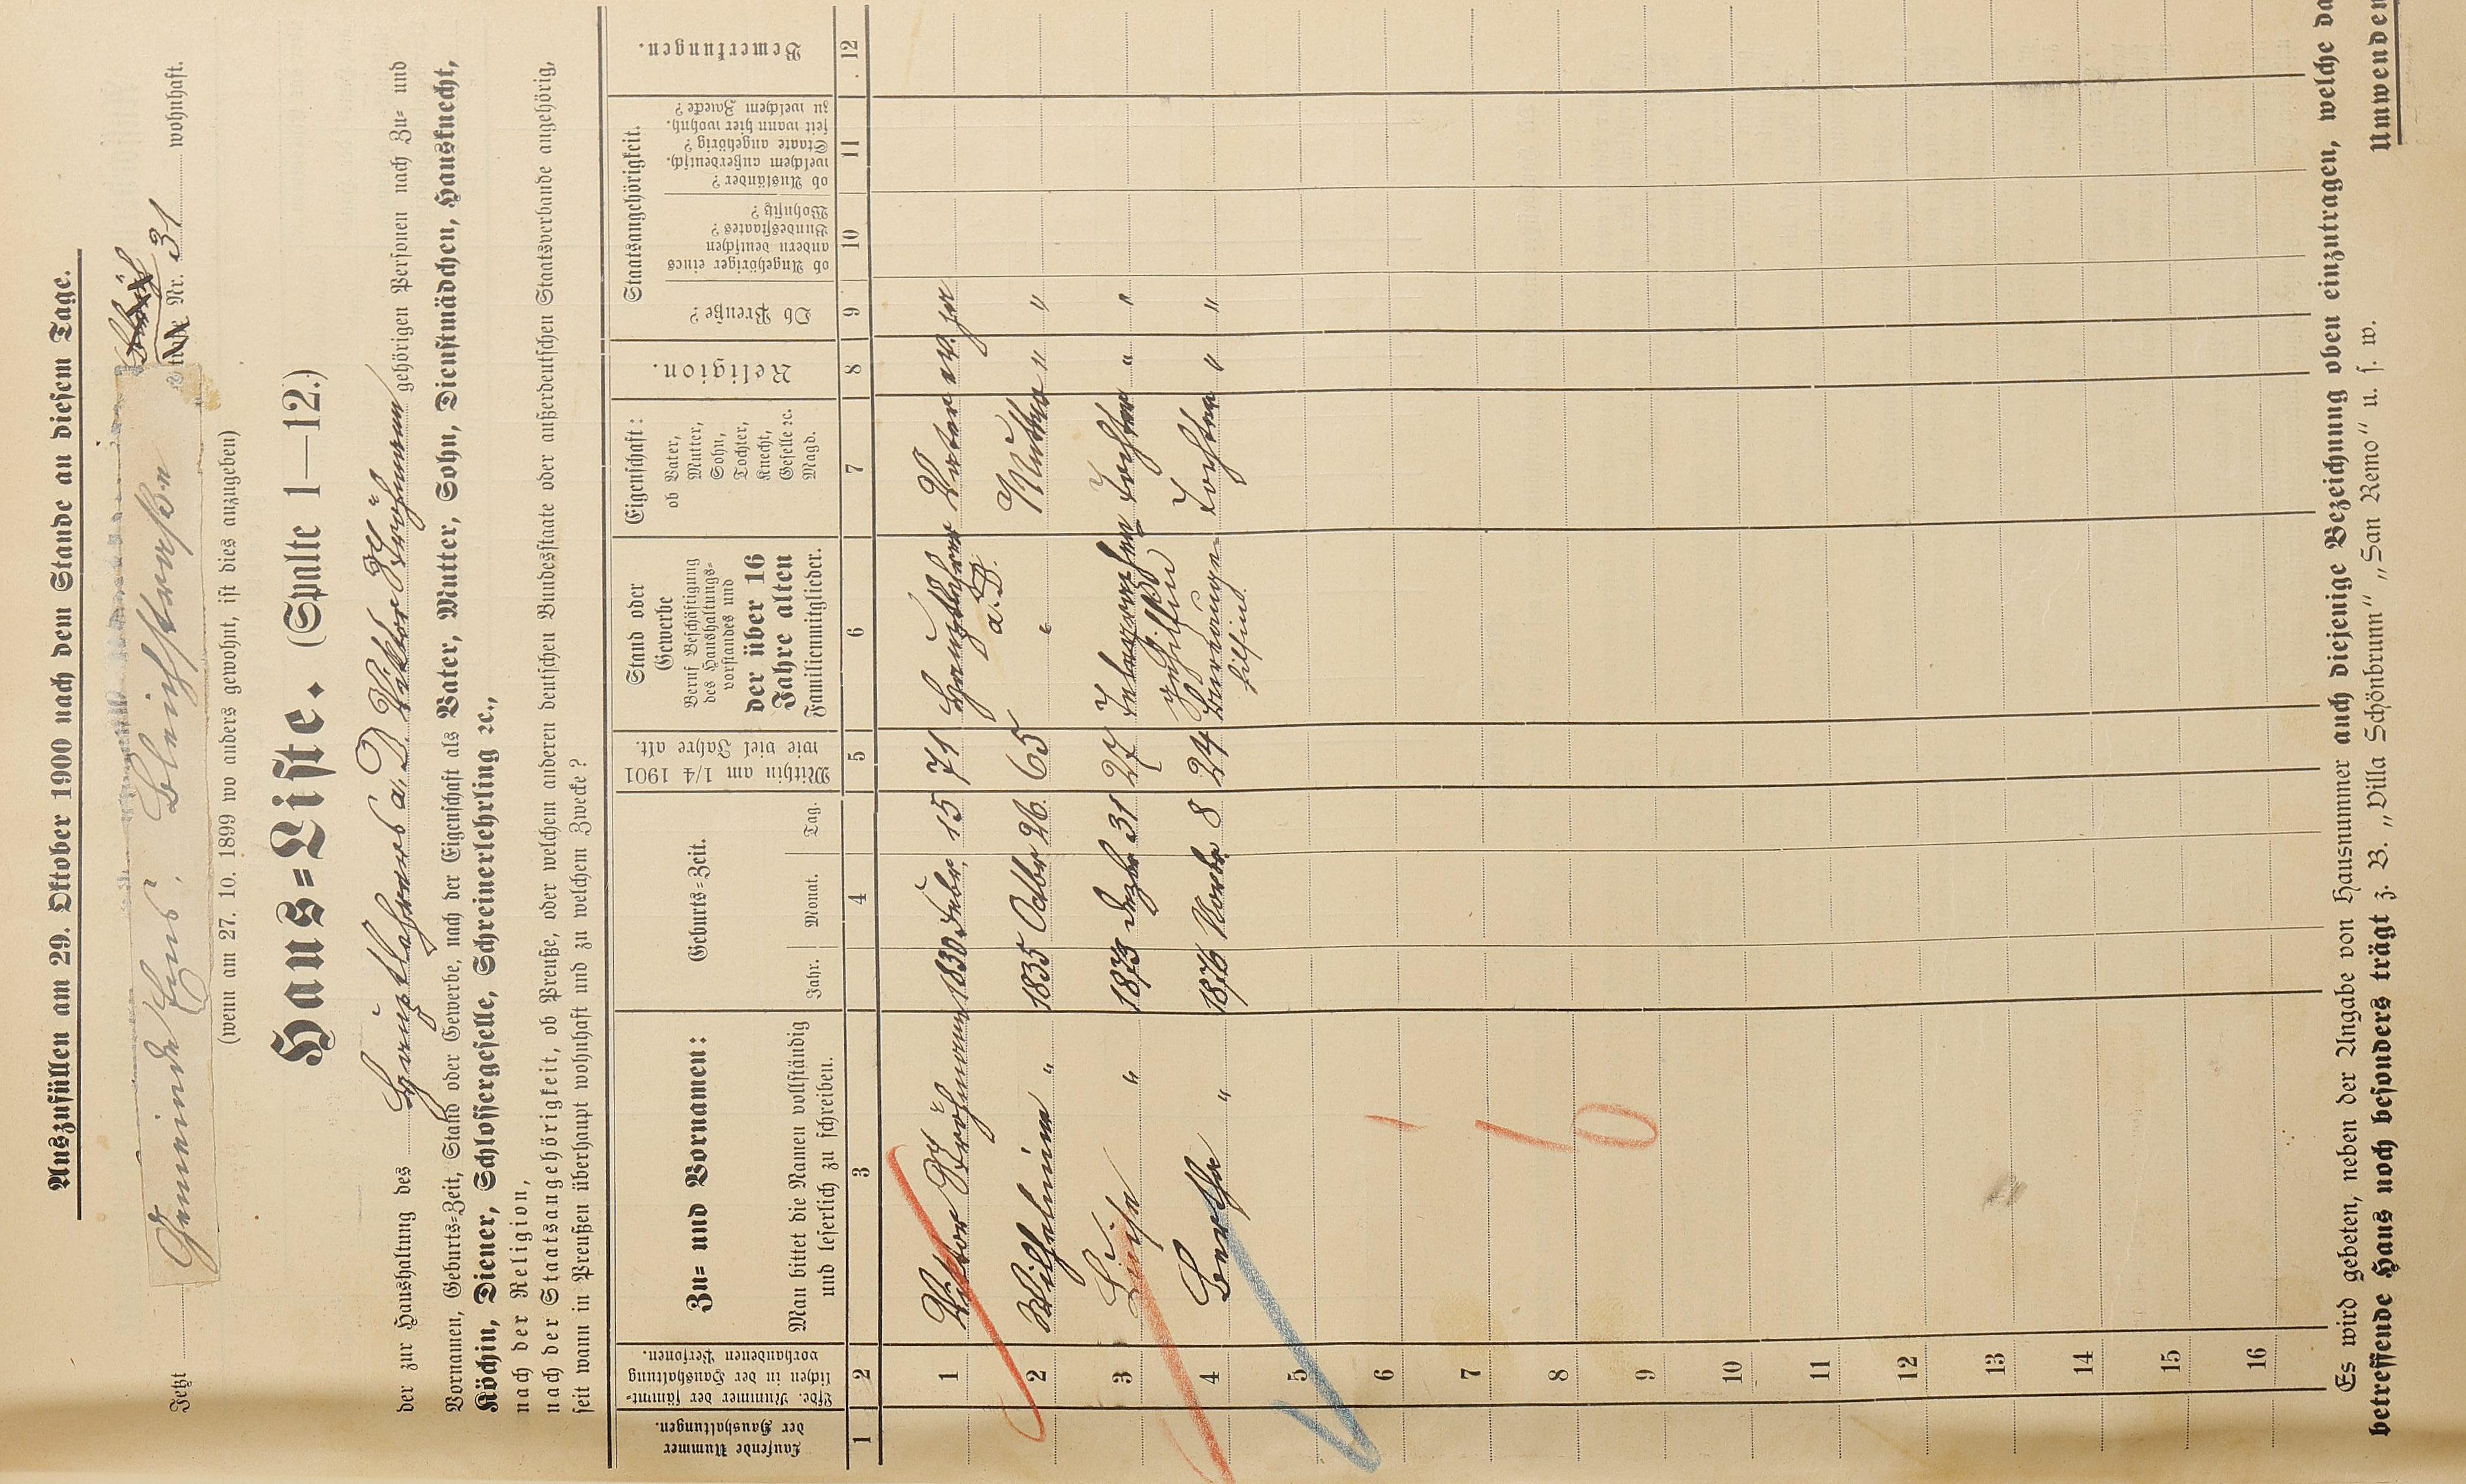 Auszufüllen am 29. Oktober 1900 nach dem Stande an diesem Tage.
Jetzt Gemeinde Ems, Bleichstrasse Nr. 31 wohnhaft.
(wenn am 27. 10. 1899 wo anders gewohnt, ist dies anzugeben)
Haus=Liste. (Spalte 1—12.)
der zur Haushaltung des Hauptlehrers a. D. Viktor Fröhmann gehörigen Personen nach Zu= und
Vornamen, Geburts=Zeit, Stand oder Gewerbe, nach der Eigenschaft als Vater, Mutter, Sohn, Dienstmädchen, Hausknecht,
Köchin, Diener, Schlossergeselle, Schreinerlehrling ꝛc.,
nach der Religion,
nach der Staatsangehörigkeit, ob Preuße, oder welchem anderen deutschen Bundesstaate oder außerdeutschen Staatsverbande angehörig,
seit wann in Preußen überhaupt wohnhaft und zu welchem Zwecke?
Laufende Nummer der Haushaltungen.
Lfde. Nummer der sämmtlichen in der Haushaltung vorhandenen Personen.
Zu= und Vornamen:
Man bittet die Namen vollständig
und leserlich zu schreiben.
Geburts=Zeit.
Jahr. Monat. Tag.
Mithin am 1/4 1901
wie viel Jahre alt.
Stand oder
Gewerbe
Beruf Beschäftigung
des Haushaltungs-
vorstandes und
der über 16
Jahre alten
Familienmitglieder.
Eigenschaft:
ob Vater,
Mutter,
Sohn,
Tochter,
Knecht,
Geselle ꝛc.
Magd.
Religion.
Staatsangehörigkeit.
Ob Preuße?
ob Angehöriger eines
andern deutschen
Bundesstaates?
Wohnsitz?
ob Ausländer?
welchem außerdeutsch.
Staate angehörig?
seit wann hier wohnh.
zu welchem Zwecke?
Bemerkungen.
1 2 3 4 5 6 7 8 9 10 11 12
1 Viktor Fröhmann 1830 Febr. 15 71 Hauptlehrer a. D. Vater ev. ja
2 Wilhelmine " 1835 Octbr 26. 65 " Mutter " "
3 Luise " 1873 Dezbr 31 27 Telegraphengehilfin Tochter " "
4 Bertha " 1876 Novbr 8 24 Tochter " "
5
6
7
8
9
10
11
12
13
14
15
16
Es wird gebeten, neben der Angabe von Hausnummer auch diejenige Bezeichnung oben einzutragen, welche da
betreffende Haus noch besonders trägt z. B. „Villa Schönbrunn" „San Remo" u. s. w.
Umwenden